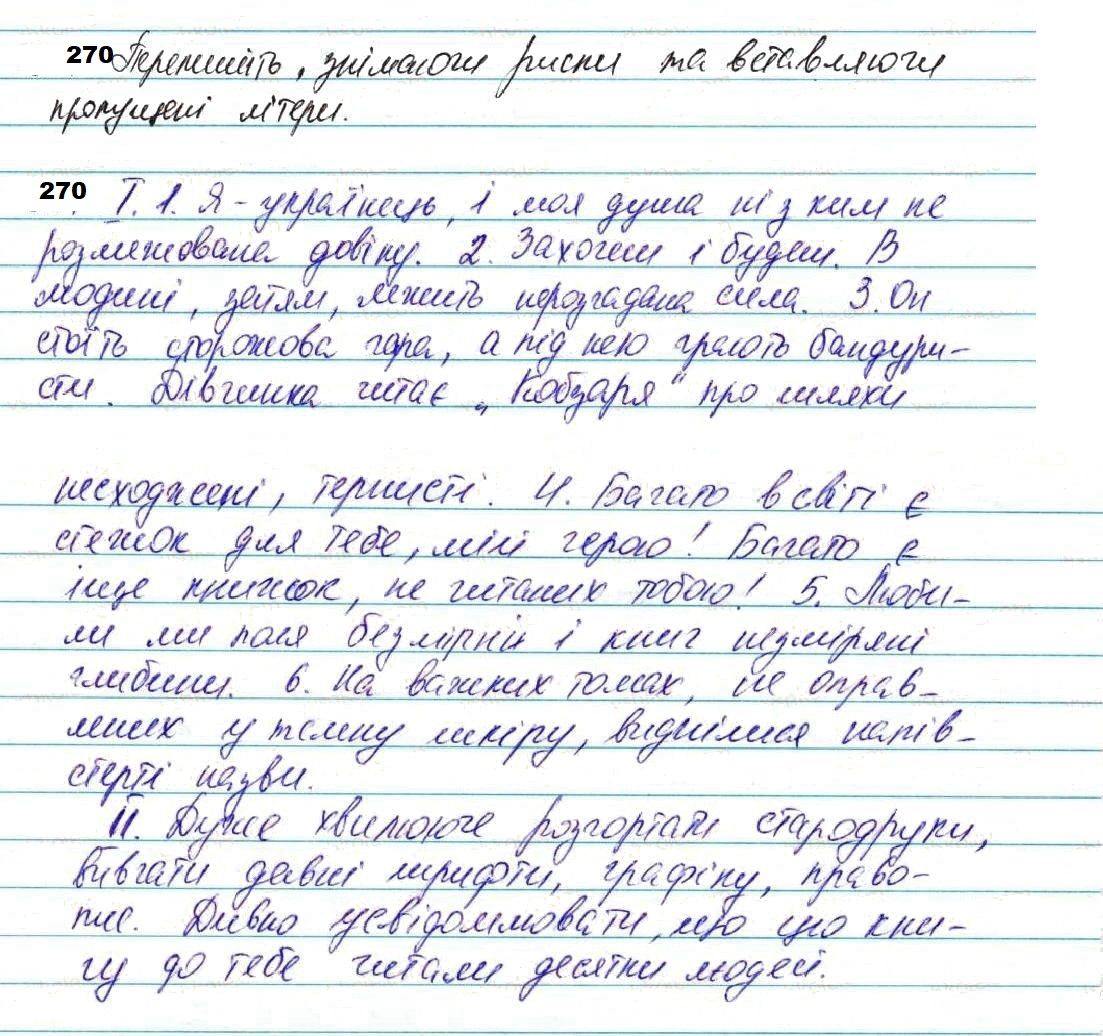 270 Перепишіть, знімаючи риски та вставляючи
пропущені літери.
270 І. 1. Я - українець, і моя душа ні з ким не
розмежована довіку. 2. Захочеш і будеш. В
людині, затям, лежить нерозгадана сила. 3. Он
стоїть сторожова гора, а під нею грають бандури-
сти. Дівчинка читає „Кобзаря" про шляхи
несходжені, тернисті. 4. Багато в світі є
стежок для тебе, мій герою! Багато є
іще книжок, не читаних тобою! 5. Люби-
ли ми поля безмірні і книг незміряні
глибини. 6. На важких томах, не оправ-
лених у темну шкіру, виднілися напів-
стерті назви.
ІІ. Дуже хвилююче розгортати стародруки,
вивчати давні шрифти, графіку, право-
пис. Дивно усвідомлювати, що цю кни-
гу до тебе читали десятки людей.